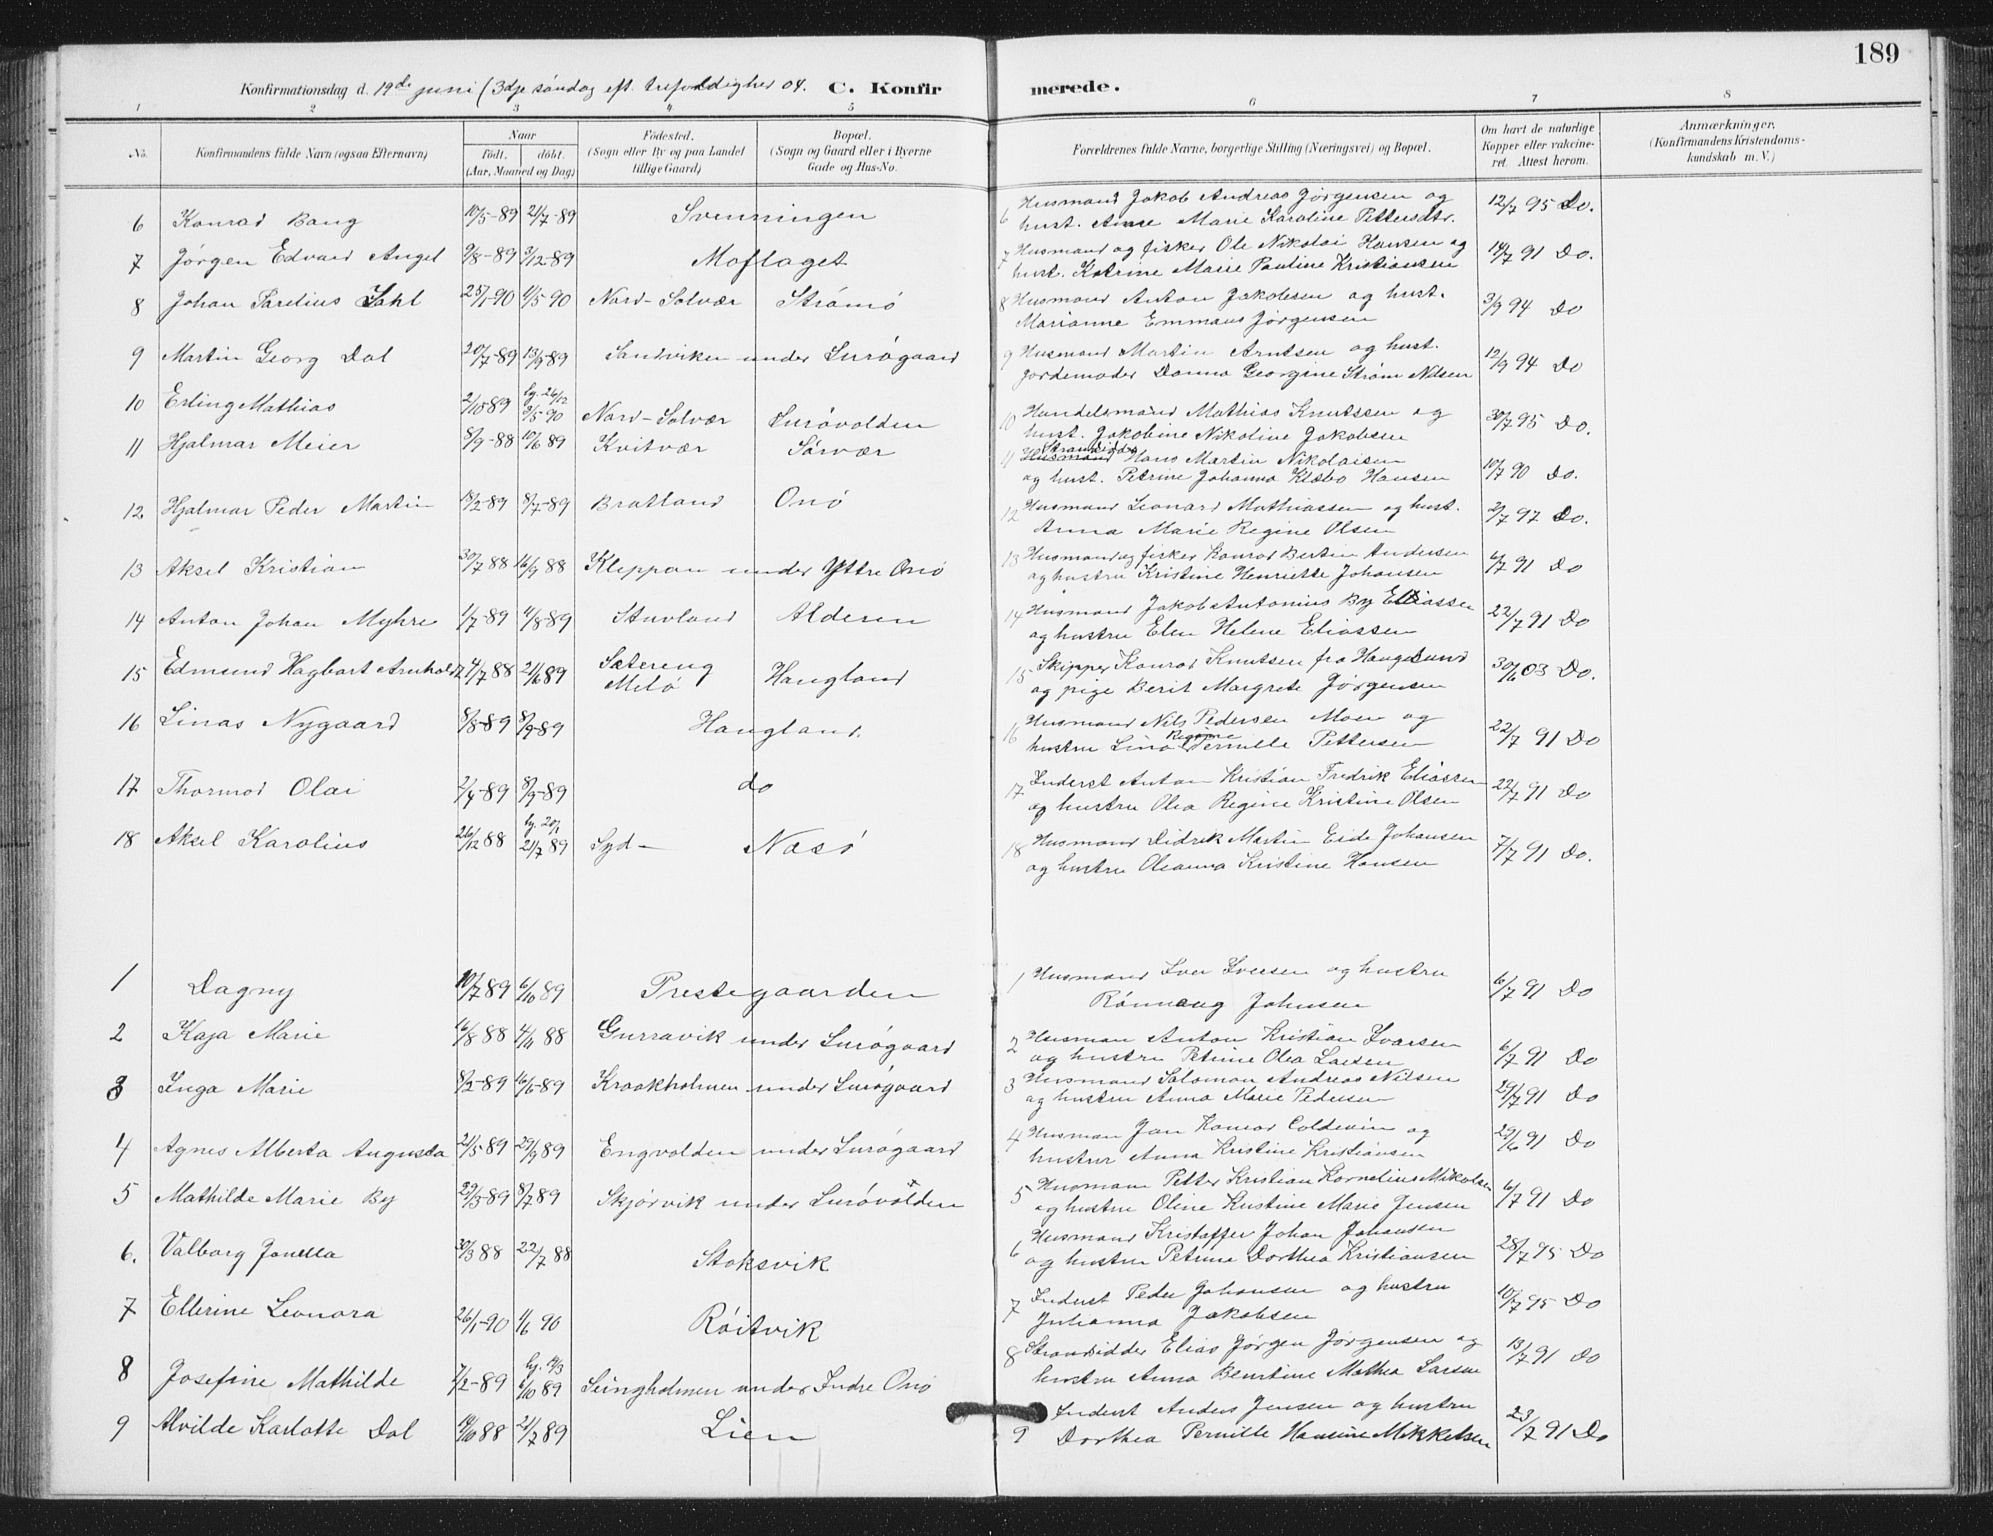 189
Konfirmationsdag d. 19de juni (3dje søndag eft. trefoldighed 04. C. Konfir merede.
1 2 3 4 5 6 7 8
No. Konfirmandens fulde Navn (ogsaa Efternavn) Naar Födested. Bopæl. Forældrenes fulde Navne, borgerlige Stilling (Næringsvei) og Bopæl. Om havt de naturlige Anmærkninger.
född, döbt, (Sogn eller By og paa Landet (Sogn og Gaard eller i Byerne Kopper eller vakcine- (Konfirmandens Kristendoms-
(Aar, Maaned og Dag) tillige Gaard) Gade og Hus-No. ret. Attest herom. kundskab m. V.)
6 Konrad Bang 10/5-89 21/7-89 Svenningen 6 Husmand Jakob Andreas Jørgensen og 12/7 95 Do.
hust. Anne Marie Karoline Pettersdtr.
7 Jørgen Edvard Angel 9/8-89 3/12-89 Moflaget 7 Husmand og fisker Ole Nikolai Hansen og 14/7 91 Do.
hust. Katrine Marie Pauline Kristiansen
8 Johan Parelius Dahl 25/1-90 4/5-90 Nord-Solvær Strømø 8 Husmand Anton Jakobsen og hust. 3/9 94 Do
Marianne Emmaus Jørgensen
9 Martin Georg Dal 20/7-89 13/9-89 Sandviken under Lurøgaard 9 Husmand Martin Arntsen og hust. 12/9 94 Do
jordemoder Danna Georgine Strøm Nilsen
10 Erling Mathias 2/10 89 hj. 26/12 3/5-90 Nord-Solvær Lurøvolden 10 Handelsmand Mathias Knutssen og 30/7 95 Do.
hust. Jakobine Nikoline Jakobsen
11 Hjalmar Meier 8/9-88 10/6 89 Kvitvær Sørvær 11 Husmand Strandsidder Hans Martin Nikolaisen 10/7 90 Do.
og hust. Petrine Johanna Klæbo Hansen
12 Hjalmar Peder Martin 18/2-89 8/7-89 Bratland Onø 12 Husmand Leonard Mathiassen og hust. 2/7 97 Do.
Anna Marie Regine Olsen
13 Aksel Kristian 30/7 88 16/9 88 Kleppan under Yttre Onø 13 Husmand og fisker Konrad Bertin Andersen 6/7 91 Do
og hustru Kristine Henriette Johansen
14 Anton Johan Myhre 1/7-89 4/8-89 Stuvland Aldersen 14 Husmand Jakob Antonius By Eliassen 22/7 91 Do
og hustru Elen Helene Eliassen
15 Edmund Hagbart Arnhold 4/7 88 21/6 89 Sætereng Milø Haugland 15 Skipper Konrad Knutsen fra Haugesund 30/6 03 Do.
og pige Berit Margrete Jørgensen
16 Linas Nygaard 8/8-89 8/9-89 Haugland. 16 Husmand Nils Pedersen Moen og 22/7 91 Do
hustru Lina Regine Pernille Pettersen
17 Thormod Olai 2/4-89 8/9-89 do 17 Inderst Anton Kristian Fredrik Eliassen 22/7 91 Do
og hustru Olea Regine Kristine Olsen
18 Aksel Karolius 26/12 88 hj. 20/1 21/7 89 Syd- Næsø 18 Husmand Didrik Martin Eide Johansen 7/7 91 Do.
og hustru Oleanna Kristine Hansen
1 Dagny 10/7 89 6/10 89 Prestegaarden 1 Husmand Iver Iversen og hustru 6/7 91 Do
Rønnaug Johnsen
2 Kaja Marie 16/8 88 4/11 88 Gurravik under Lurøgaard 2 Husman Anton Kristian Ivarsen 6/7 91 Do
og hustru Petrine Olea Larsen
3 Inga Marie 8/2-89 16/6-89 Kraakholmen under Lurøgaard 3 Husmand Salomon Andreas Nilsen 29/7 91 Do
og hustru Anna Marie Pedersen
4 Agnes Alberta Augusta 21/5-89 29/9 89 Engvolden under Lurøgaard 4 Husman Jan Konrad Coldevin og 29/6 91 Do
hustru Anna Kristine Kristiansen
5 Mathilde Marie By 29/3-89 8/7 89 Skjørvik under Lurøvolden 5 Husmann Petter Kristian Kornelius Mikalsen 6/7 91 Do
og hustru Oline Kristine Marie Jensen
6. Valborg Jonetta 30/3 88 22/7 88 Stoksvik 6 Husmand Kristoffer Johan Johansen 28/7 95 Do
og hustru Petrine Dorthea Kristiansen
7 Ellerine Leonora 26/1-90 1/6 90 Røitvik 7 Inderst Peder Johansen og hustru 10/7 95 Do
Julianna Jakobsen
8 Josefine Mathilde 7/2-89 hj. 14/3 6/10 89 Seingholmen under Indre Onø 8 Strandsidder Elias Jørgen Jørgensen og 13/7 91 Do
hustru Anna Berntine Mathea Larsen
9 Alvilde Karlotte Dal 19/10 88 21/7 89 Lien 9 Inderst Anders Jensen og hustru 23/7 91 Do
Dorthea Pernille Hansine Mikkelsen